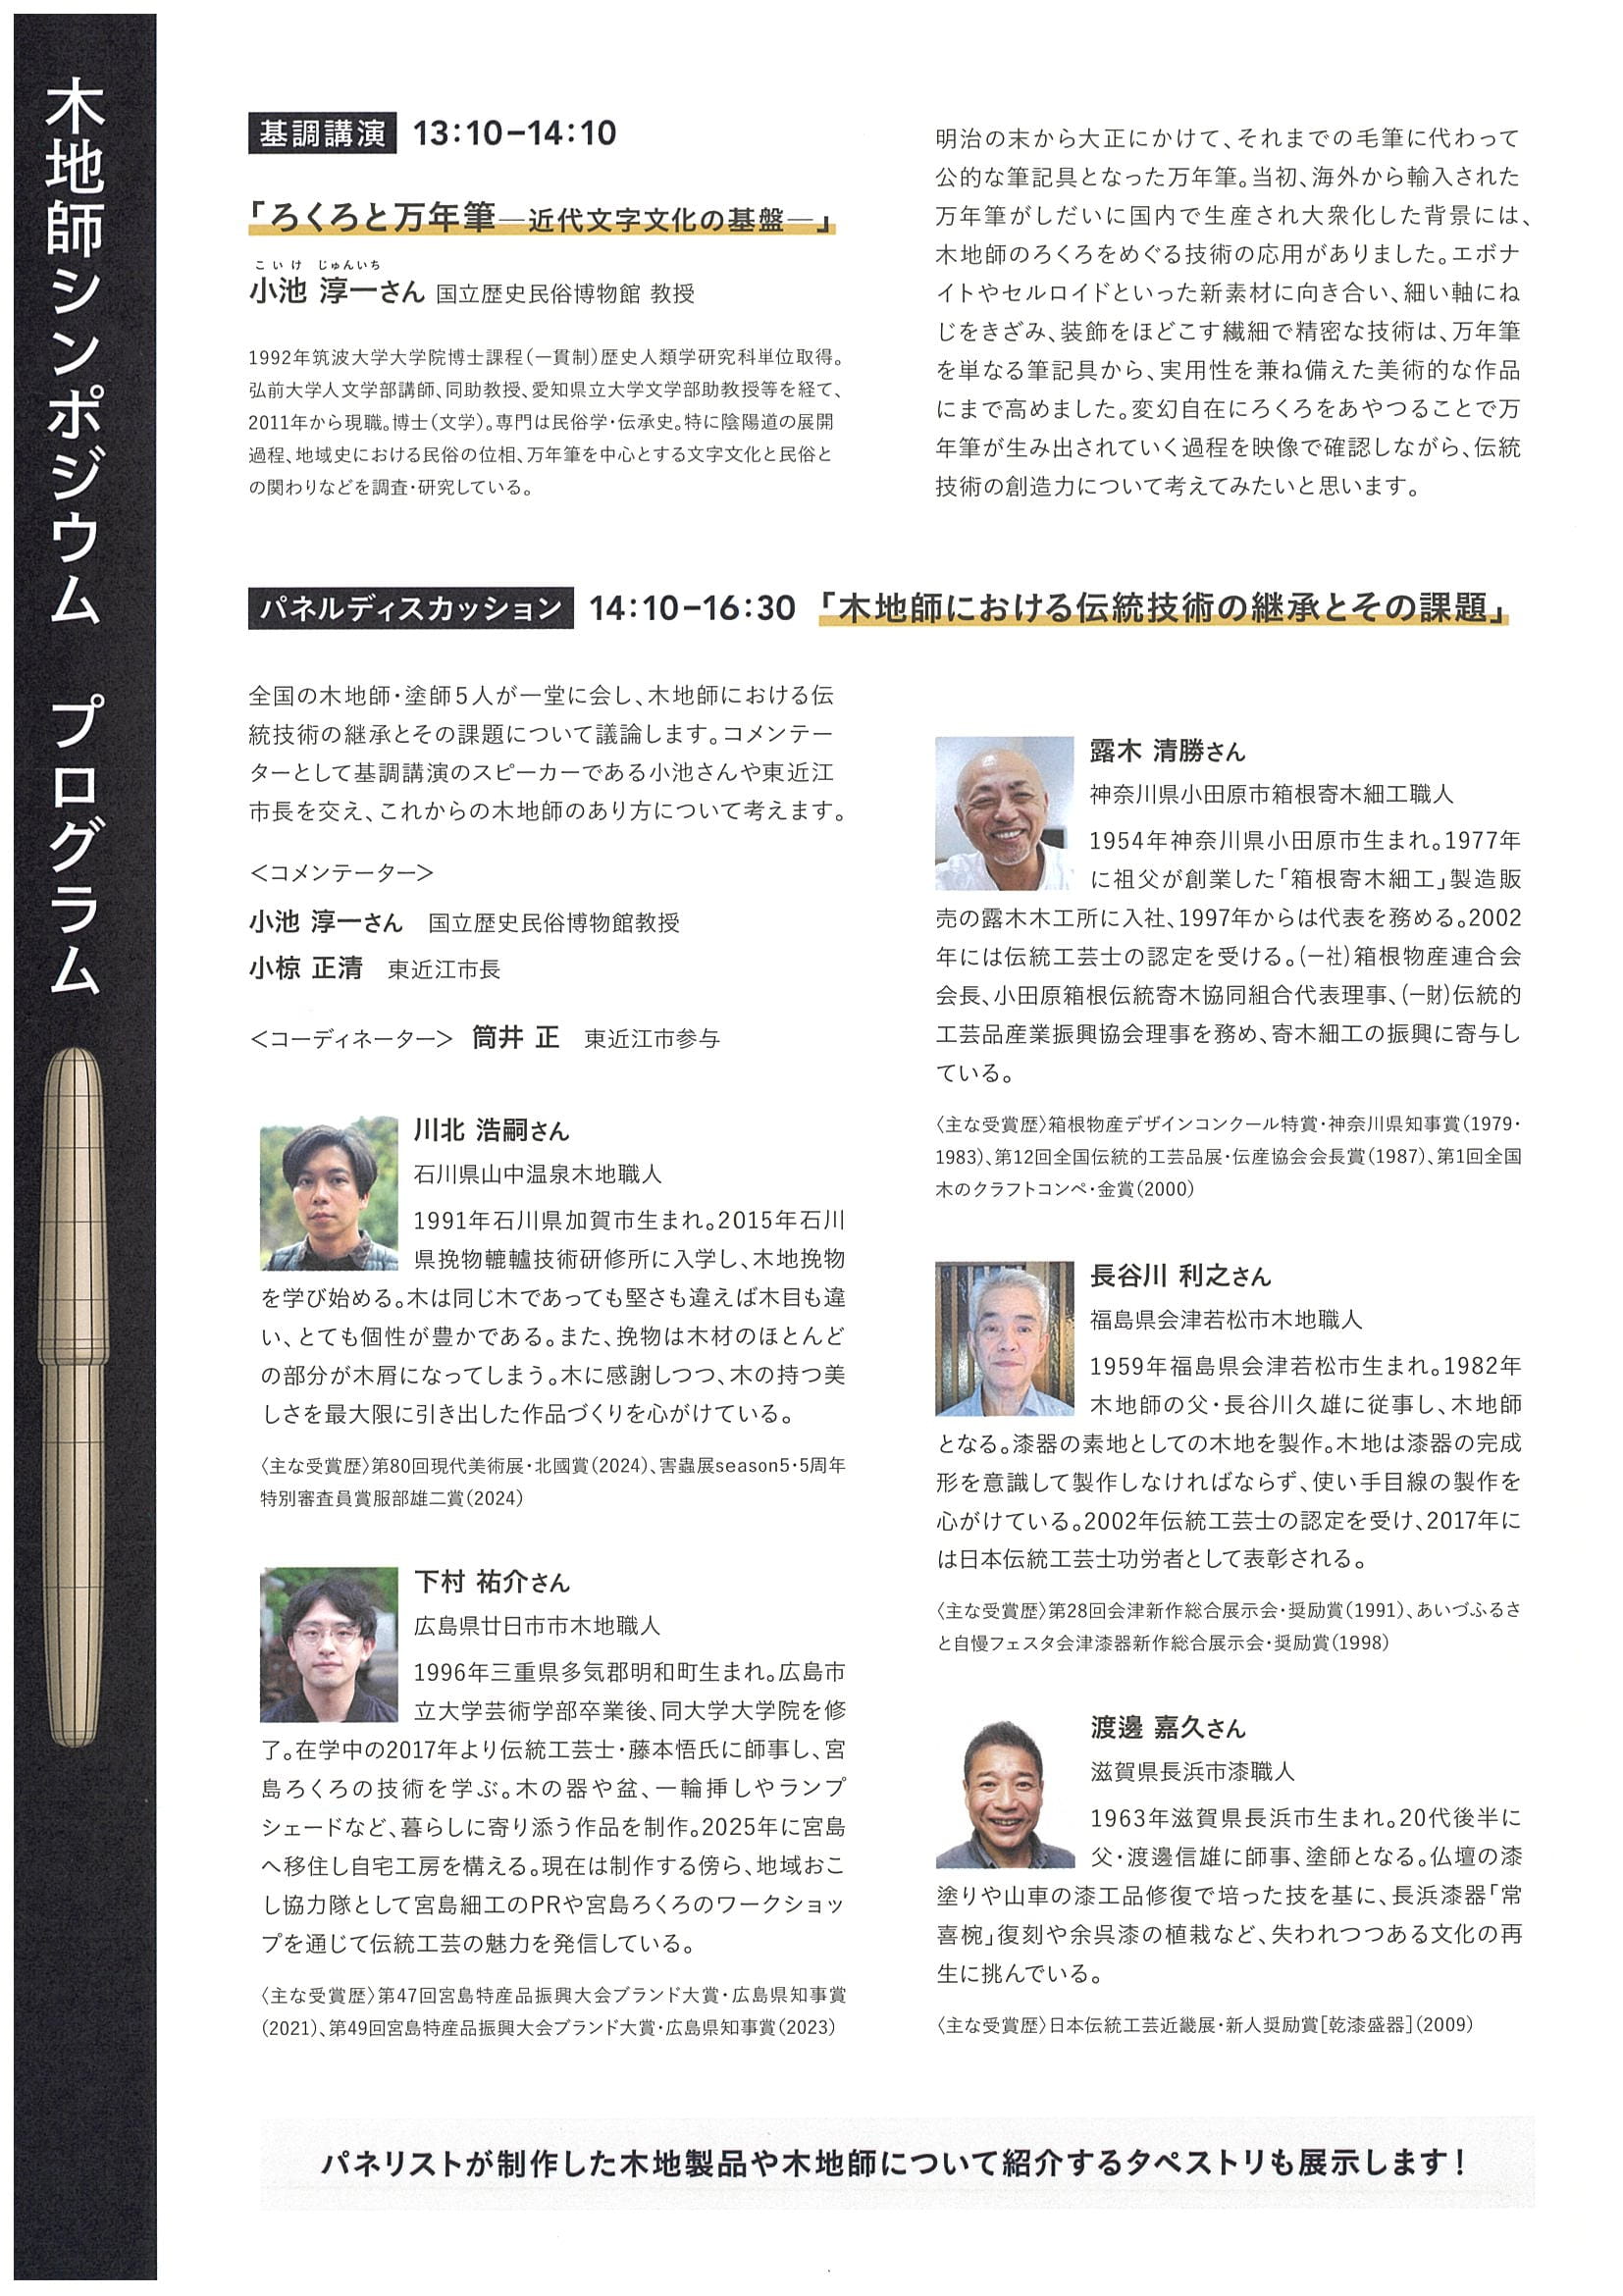 木地師シンポジウム プログラム
基調講演 13:10−14:10
「ろくろと万年筆―近代文字文化の基盤―」
こいけ じゅんいち
小池 淳一さん 国立歴史民俗博物館 教授
1992年筑波大学大学院博士課程(一貫制)歴史人類学研究科単位取得。
弘前大学人文学部講師、同助教授、愛知県立大学文学部助教授等を経て、
2011年から現職。博士(文学)。専門は民俗学・伝承史。特に陰陽道の展開
過程、地域史における民俗の位相、万年筆を中心とする文字文化と民俗と
の関わりなどを調査・研究している。
明治の末から大正にかけて、それまでの毛筆に代わって
公的な筆記具となった万年筆。当初、海外から輸入された
万年筆がしだいに国内で生産され大衆化した背景には、
木地師のろくろをめぐる技術の応用がありました。エボナ
イトやセルロイドといった新素材に向き合い、細い軸にね
じをきざみ、装飾をほどこす繊細で精密な技術は、万年筆
を単なる筆記具から、実用性を兼ね備えた美術的な作品
にまで高めました。変幻自在にろくろをあやつることで万
年筆が生み出されていく過程を映像で確認しながら、伝統
技術の創造力について考えてみたいと思います。
パネルディスカッション 14:10−16:30 「木地師における伝統技術の継承とその課題」
全国の木地師・塗師5人が一堂に会し、木地師における伝
統技術の継承とその課題について議論します。コメンテー
ターとして基調講演のスピーカーである小池さんや東近江
市長を交え、これからの木地師のあり方について考えます。
＜コメンテーター＞
小池 淳一さん 国立歴史民俗博物館教授
小椋 正清 東近江市長
＜コーディネーター＞ 筒井 正 東近江市参与
川北 浩嗣さん
石川県山中温泉木地職人
1991年石川県加賀市生まれ。2015年石川
県挽物轆轤技術研修所に入学し、木地挽物
を学び始める。木は同じ木であっても堅さも違えば木目も違
い、とても個性が豊かである。また、挽物は木材のほとんど
の部分が木屑になってしまう。木に感謝しつつ、木の持つ美
しさを最大限に引き出した作品づくりを心がけている。
〈主な受賞歴〉第80回現代美術展・北國賞(2024)、害蟲展season5・5周年
特別審査員賞服部雄二賞(2024)
下村 祐介さん
広島県廿日市市木地職人
1996年三重県多気郡明和町生まれ。広島市
立大学芸術学部卒業後、同大学大学院を修
了。在学中の2017年より伝統工芸士・藤本悟氏に師事し、宮
島ろくろの技術を学ぶ。木の器や盆、一輪挿しやランプ
シェードなど、暮らしに寄り添う作品を制作。2025年に宮島
へ移住し自宅工房を構える。現在は制作する傍ら、地域おこ
し協力隊として宮島細工のPRや宮島ろくろのワークショッ
プを通じて伝統工芸の魅力を発信している。
〈主な受賞歴〉第47回宮島特産品振興大会ブランド大賞・広島県知事賞
(2021)、第49回宮島特産品振興大会ブランド大賞・広島県知事賞(2023)
露木 清勝さん
神奈川県小田原市箱根寄木細工職人
1954年神奈川県小田原市生まれ。1977年
に祖父が創業した「箱根寄木細工」製造販
売の露木木工所に入社、1997年からは代表を務める。2002
年には伝統工芸士の認定を受ける。(一社)箱根物産連合会
会長、小田原箱根伝統寄木協同組合代表理事、(一財)伝統的
工芸品産業振興協会理事を務め、寄木細工の振興に寄与し
ている。
〈主な受賞歴〉箱根物産デザインコンクール特賞・神奈川県知事賞(1979・
1983)、第12回全国伝統的工芸品展・伝産協会会長賞(1987)、第1回全国
木のクラフトコンペ・金賞(2000)
長谷川 利之さん
福島県会津若松市木地職人
1959年福島県会津若松市生まれ。1982年
木地師の父・長谷川久雄に従事し、木地師
となる。漆器の素地としての木地を製作。木地は漆器の完成
形を意識して製作しなければならず、使い手目線の製作を
心がけている。2002年伝統工芸士の認定を受け、2017年に
は日本伝統工芸士功労者として表彰される。
〈主な受賞歴〉第28回会津新作総合展示会・奨励賞(1991)、あいづふるさ
と自慢フェスタ会津漆器新作総合展示会・奨励賞(1998)
渡邊 嘉久さん
滋賀県長浜市漆職人
1963年滋賀県長浜市生まれ。20代後半に
父・渡邊信雄に師事、塗師となる。仏壇の漆
塗りや山車の漆工品修復で培った技を基に、長浜漆器「常
喜椀」復刻や余呉漆の植栽など、失われつつある文化の再
生に挑んでいる。
〈主な受賞歴〉日本伝統工芸近畿展・新人奨励賞[乾漆盛器](2009)
パネリストが制作した木地製品や木地師について紹介するタペストリも展示します！